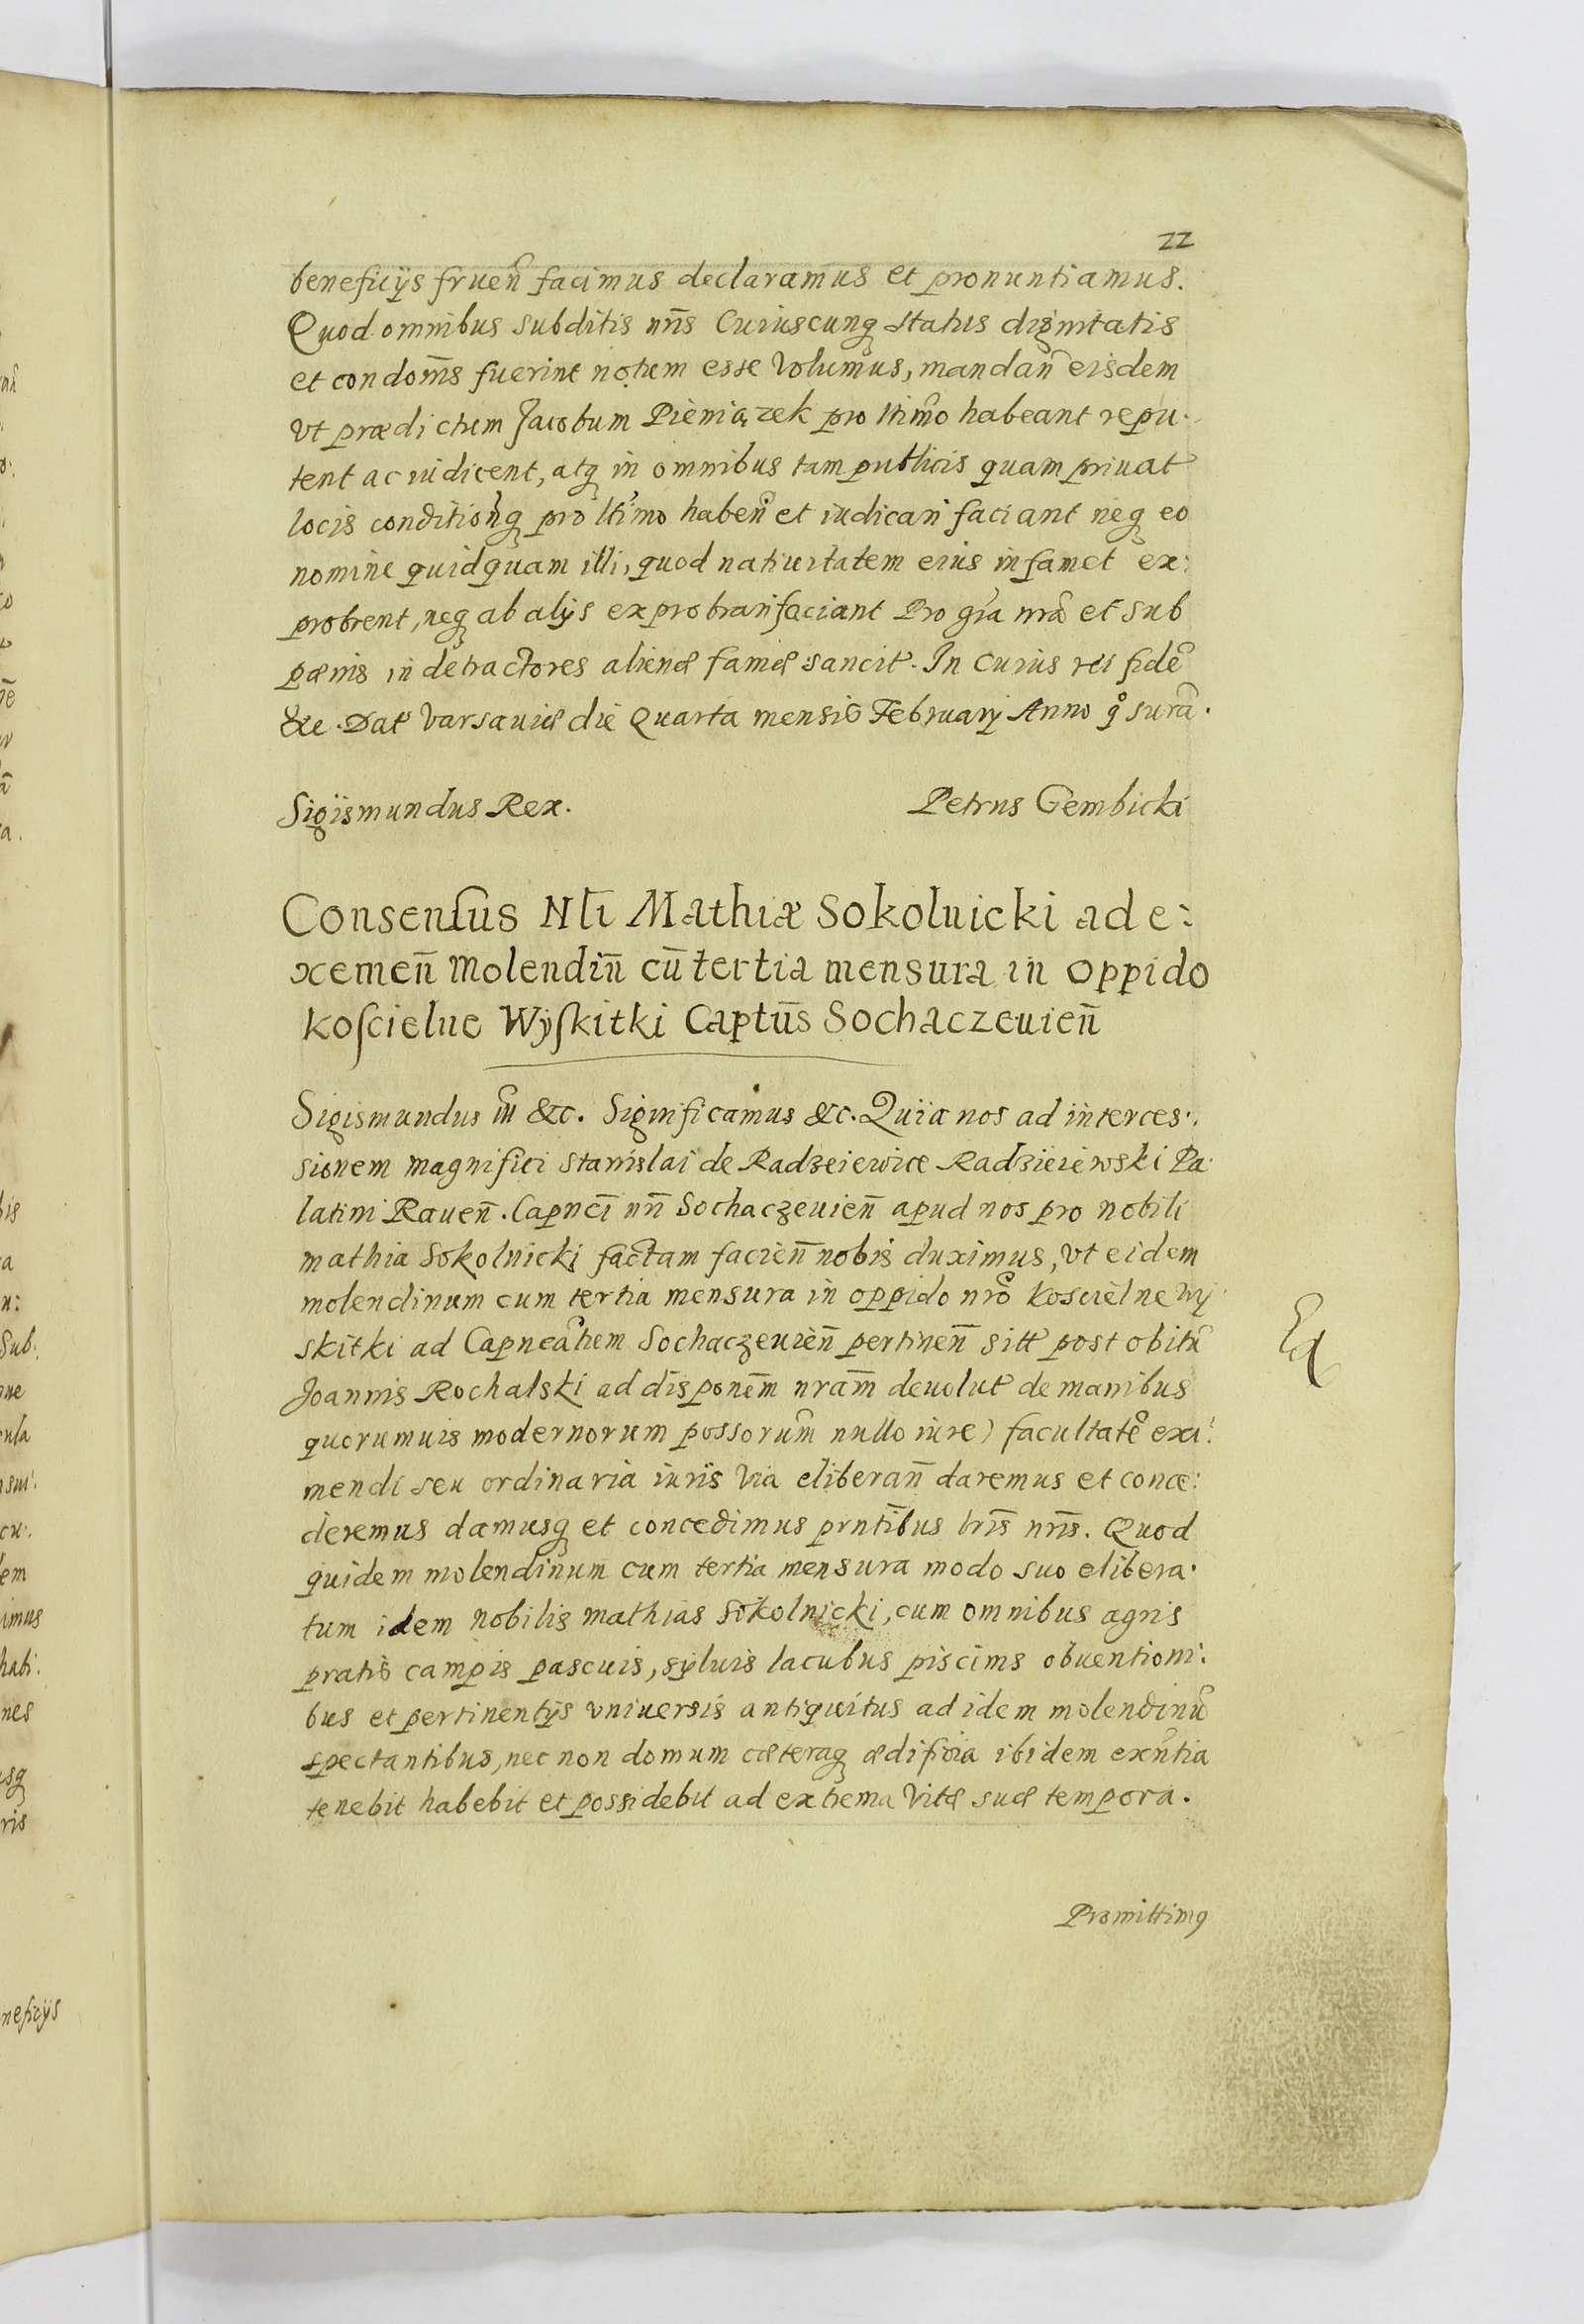 22
beneficijs fruen̄ facimus declaramus et pronuntiamus.
Quod omnibus subditis nr̄is Cuiuscunq status dignitatis
et condoīs fuerint notum esse Volumus, mandan̄ eisdem
vt prædictum Jacobum Pieniązek pro ltīmo habeant repu-
tent ac iudicent, atq in omnibus tam publicis quam priuat
locis condition̄q pro ltīmo haben̄ et iudicari faciant neq eo
nomine quidquam illi, quod natiuitatem eius infamet ex:
probrent, neq ab alijs exprobrari faciant Pro gr̄a nrā et sub
pœnis in detractores alienæ famæ sancit. In Cuius rei fidē
&c. Dat Varsauiæ die Quarta mensis February Anno q̊ surā.
Sigismundus Rex.
Petrus Gembicki
Consensus Nlī Mathiæ Sokolnicki ad e:
ximen̄ Molendin̄ cū tertia mensura in oppido
Koscielne Wyskitki Captūs Sochaczeuien̄
Sigismundus III &c. Significamus &c. Quia nos ad interces:
sionem magnifici Stanislai de Radzeiewice Radzieiewski Pa:
latini Rauen̄. Capnei nr̄i Sochaczeuien̄ apud nos pro nobili
mathia Sokolnicki factam facien̄ nobis duximus, vt eidem
molendinum cum tertia mensura in oppido nrō Koscielne Wy
skitki ad Capneātum Sochaczeuien̄ pertinen̄ sitt post obitū
Joannis Rochalski ad disponēm nrām deuolut de manibus
quorumuis modernorum possorūm nullo iure) facultatē exi:
mendi seu ordinaria iuris via eliberan̄ daremus et conce:
deremus damusq et concedimus prntībus lrīs nrīs. Quod
quidem molendinum cum tertia mensura modo suo elibera:
tum idem nobilis mathias Sokolnicki, cum omnibus agris
pratis campis pascuis, syluis lacubus piscinis obuentioni:
bus et pertinentijs vniuersis antiquitus ad idem molendinū
spectantibus, nec non domum cæteraq ædificia ibidem exn̄tia
tenebit habebit et possidebit ad extrema Vitæ suæ tempora.
Promittimq